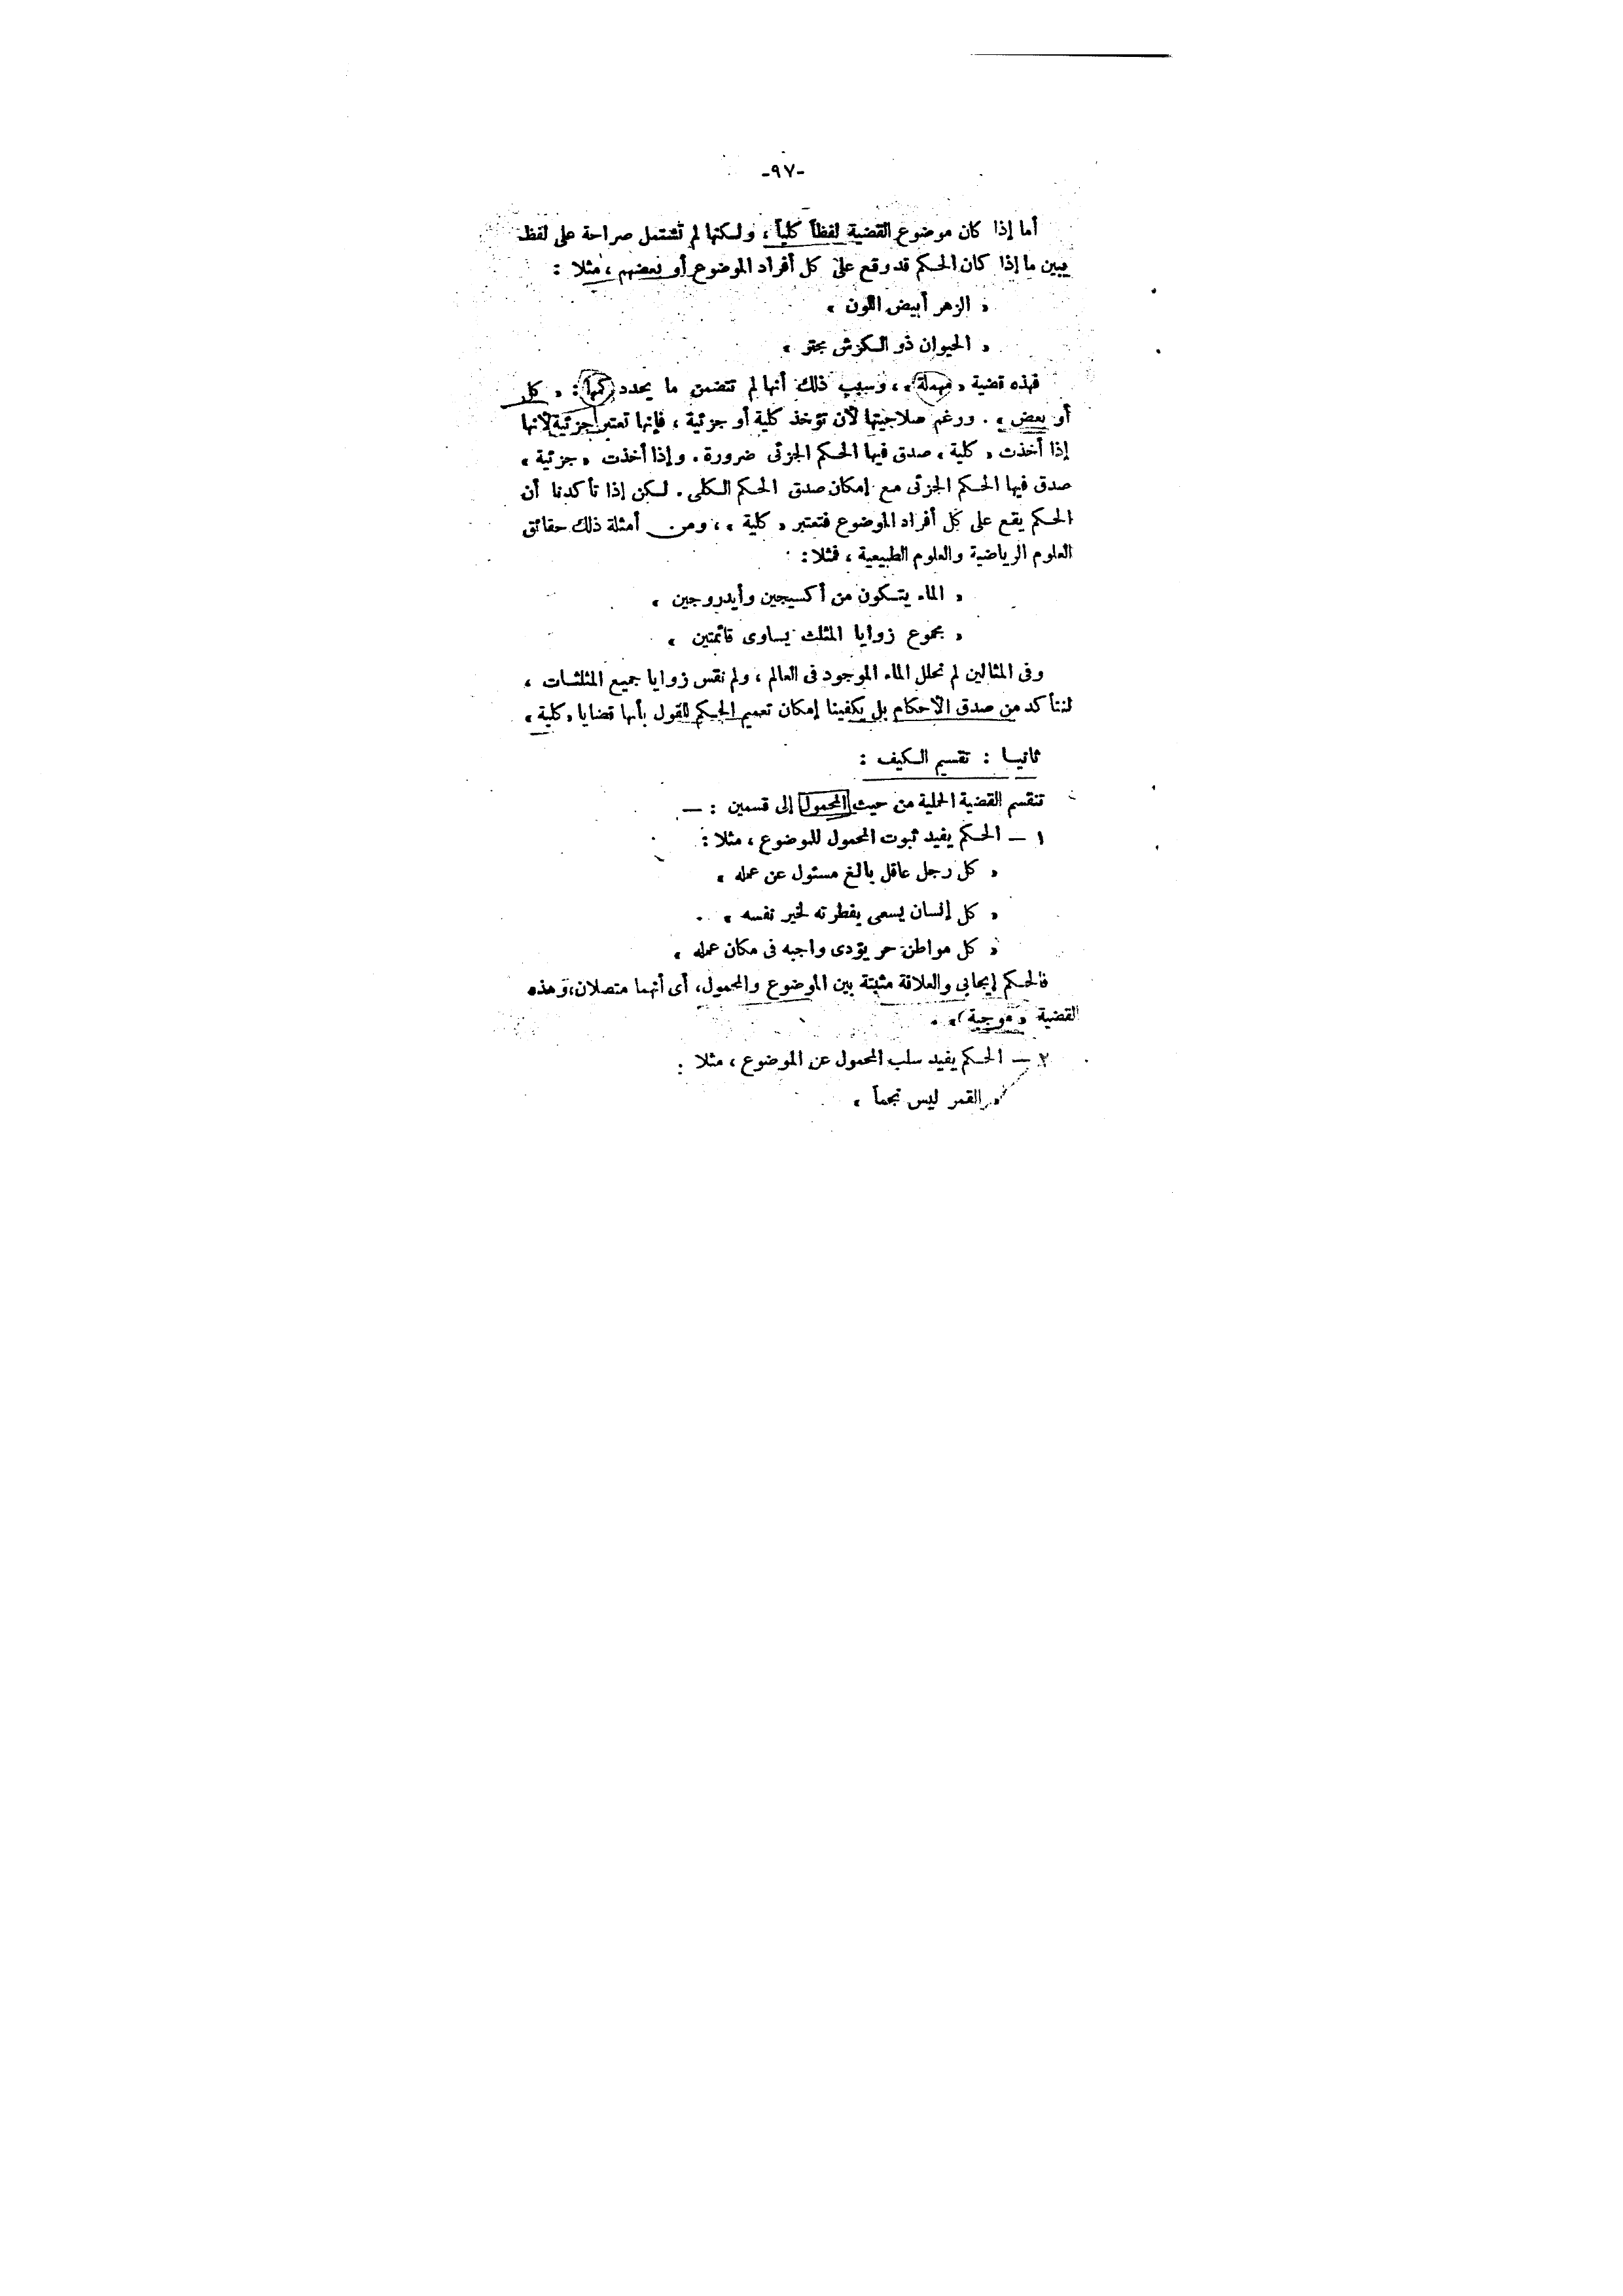 -٩٧-
أما إذا كان موضوع القضية لفظاً كلياً ، ولكنها لم تشتمل صراحة على لفظ
يبين ما إذا كان الحكم قد وقع على كل أفراد الموضوع أو بعضهم ، مثلا :
« الزهر أبيض اللون »
« الحيوان ذو الكرش مجتر »
فهذه قضية « مهملة » ، وسبب ذلك أنها لم تتضمن ما يحدد كمها : « كل
أو بعض » . ورغم صلاحيتها لأن تؤخذ كلية أو جزئية ، فإنها تعتبر جزئية لأنها
إذا أخذت « كلية » صدق فيها الحكم الجزئى ضرورة . وإذا أخذت « جزئية »
صدق فيها الحكم الجزئى مع إمكان صدق الحكم الكلى . لكن إذا تأكدنا أن
الحكم يقع على كل أفراد الموضوع فتعتبر « كلية » ، ومن أمثلة ذلك حقائق
العلوم الرياضية والعلوم الطبيعية ، فمثلا :
« الماء يتكون من أكسيجين وأيدروجين »
« مجموع زوايا المثلث يساوى قائمتين »
وفى المثالين لم نحلل الماء الموجود فى العالم ، ولم نقس زوايا جميع المثلثات ،
لنتأكد من صدق الأحكام بل يكفينا إمكان تعميم الحكم للقول بأنها قضايا « كلية »
ثانيا : تقسيم الكيف :
تنقسم القضية الحملية من حيث المحمول إلى قسمين : —
١ — الحكم يفيد ثبوت المحمول للموضوع ، مثلا :
« كل رجل عاقل بالغ مسئول عن عمله »
« كل إنسان يسعى بفطرته لخير نفسه » .
« كل مواطن حر يؤدى واجبه فى مكان عمله »
فالحكم إيجابي والعلاقة مثبتة بين الموضوع والمحمول، أى أنهما متصلان، وهذه
القضية « موجبة » .
٢ — الحكم يفيد سلب المحمول عن الموضوع ، مثلا :
« القمر ليس نجماً »